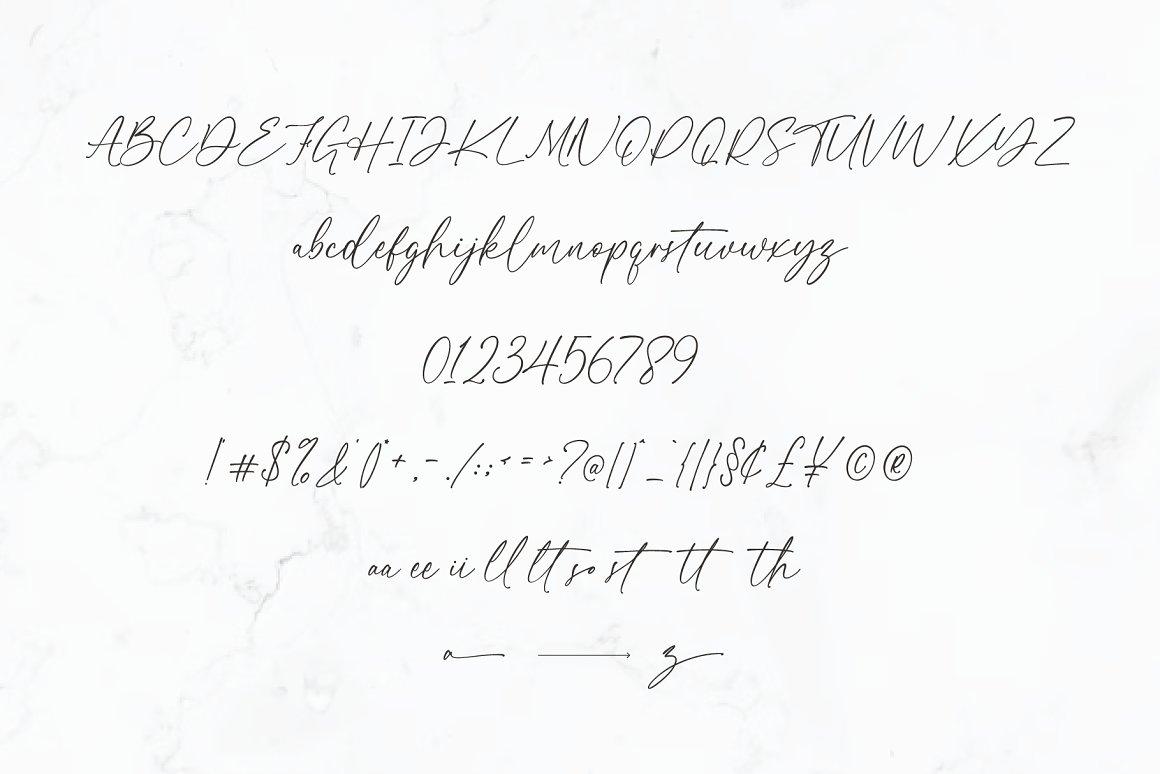 ABCDEFGHIJKLMNOPQRSTUVWXYZ
abcdefghijklmnopqrstuvwxyz
0123456789
!"#$%&'()*+,-./:;<=>?@[\]^_`{|}§¢£¥©®
aa ee ii ll lt so st tt th
a → z